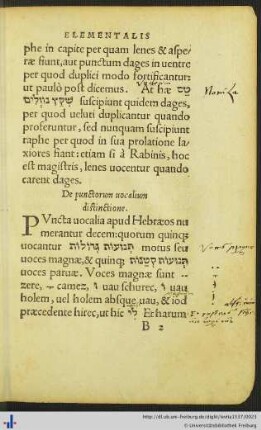 ELEMENTALIS
phe in capite per quam lenes & aspe/
ræ fiunt, aut punctum dages in uentre
per quod duplici modo fortificantur:
ut paulò post dicemus. At hæ
suscipiunt quidem dages,
per quod ueluti duplicantur quando
proferuntur, sed nunquam suscipiunt
raphe per quod in sua prolatione la
xiores fiant: etiam si à Rabinis, hoc
est magistris, lenes uocentur quando
carent dages.
De punctorum uocalium
distinctione.
PVncta uocalia apud Hebræos nu
merantur decem: quorum quinque
uocantur תנועות גדולות motus seu
uoces magnæ, & quinque תנועות קטנות
uoces paruæ. Voces magnæ sunt
zere, camez, ו uau schurec, ו uau
holem, uel holem absque uau, & iod
præcedente hirec, ut hic לי Et harum
B 2
http://dl.ub.uni-freiburg.de/diglit/
© Universitätsbibliothek Freiburg